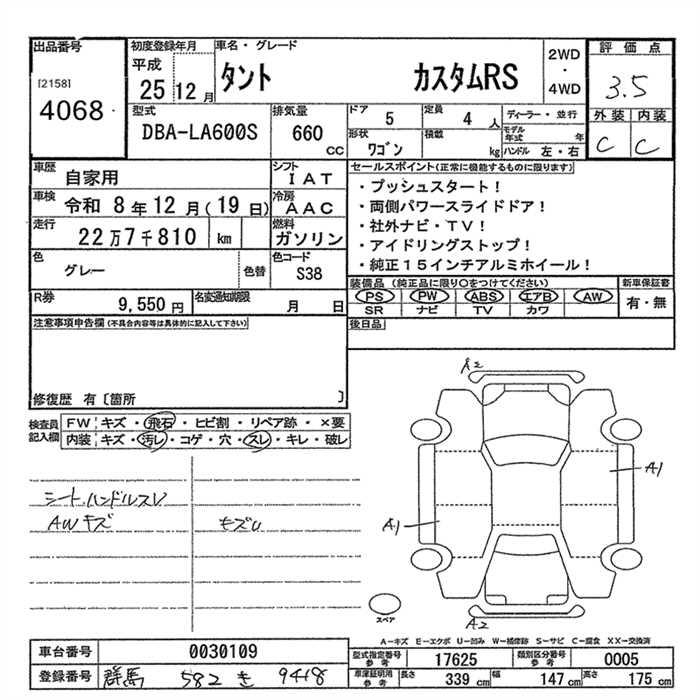 出品番号
[2158]
4068
初度登録年月
平成
25 12月
車名・グレード
タント カスタムRS
2WD
・
4WD
評価点
3.5
外装 内装
C C
型式
DBA-LA600S
排気量
660
CC
ドア
5
定員
4 人
形状
ワゴン
積載
kg
ディーラー・並行
モデル年式 年
ハンドル 左・右
車歴
自家用
シフト
IAT
車検
令和 8年12月(19日)
冷房
AAC
走行
22万7千810 km
燃料
ガソリン
色
グレー
色替
色コード
S38
R券
9,550円
名変通知期限
月 日
セールスポイント(正常に機能するものに限ります)
・プッシュスタート!
・両側パワースライドドア!
・社外ナビ・TV!
・アイドリングストップ!
・純正15インチアルミホイール!
装備品 (純正品に限り○をつけてください)
PS PW ABS エアB AW
SR ナビ TV カワ
新車保証書
有・無
後日品
注意事項申告欄 (不具合内容等は具体的に記入して下さい)
修復歴 有〔箇所 〕
検査員
記入欄
FW キズ・飛石・ヒビ割・リペア跡・×要
内装 キズ・汚レ・コゲ・穴・スレ・キレ・破レ
シート、ハンドルスレ
AWキズ
キズU
A2
A1
A1
A2
スペア
A-キズ E-エクボ U-凹み W-補修跡 S-サビ C-腐食 XX-交換済
車台番号 0030109
登録番号 群馬 582 き 9418
型式指定番号
参考
17625
類別区分番号
参考
0005
車庫証明用
参考
長さ 339 cm 幅 147 cm 高さ 175 cm